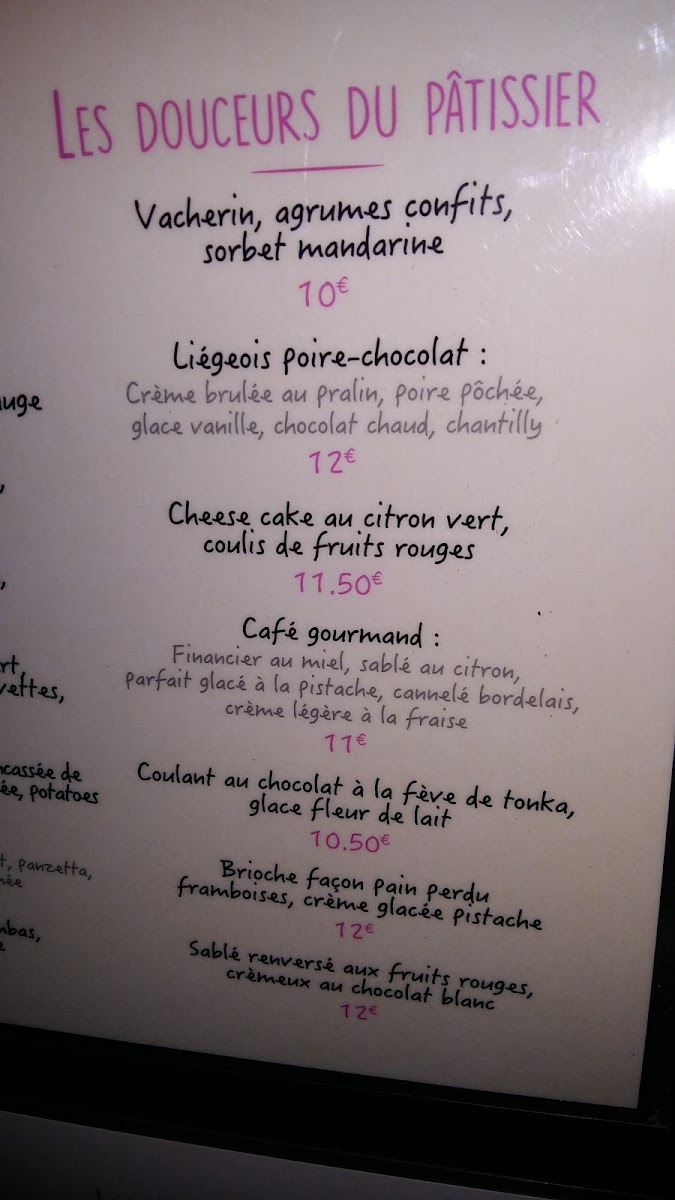 LES DOUCEURS DU PÂTISSIER
Vacherin, agrumes confits,
sorbet mandarine
10€
Liégeois poire-chocolat :
Crème brulée au pralin, poire pôchée,
glace vanille, chocolat chaud, chantilly
12€
Cheese cake au citron vert,
coulis de fruits rouges
11.50€
Café gourmand :
Financier au miel, sablé au citron,
parfait glacé à la pistache, cannelé bordelais,
crème légère à la fraise
11€
Coulant au chocolat à la fève de tonka,
glace fleur de lait
10.50€
Brioche façon pain perdu
framboises, crème glacée pistache
12€
Sablé renversé aux fruits rouges,
crèmeux au chocolat blanc
12€
de
potatoes
panzetta,